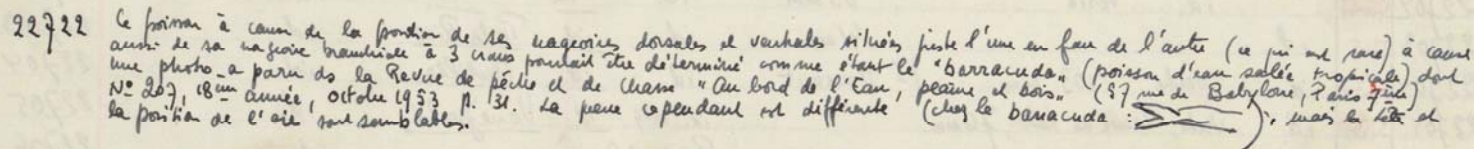 22722 Ce poisson à cause de la position de ses nageoires dorsales et ventrales situées juste l'une en face de l'autre (ce qui est rare) à cause
aussi de sa nageoire branchiale à 3 crans pourrait être déterminé comme étant le "barracuda" (poisson d'eau salée tropicale) dont
une photo a paru ds la Revue de pêche et de chasse "Au bord de l'Eau, plaine et bois" (57 rue de Babylone, Paris 7ème)
N° 207, 18ème année, octobre 1953 p. 31. La queue cependant est différente (chez le barracuda : ), mais la tête et
la position de l'oeil sont semblables.